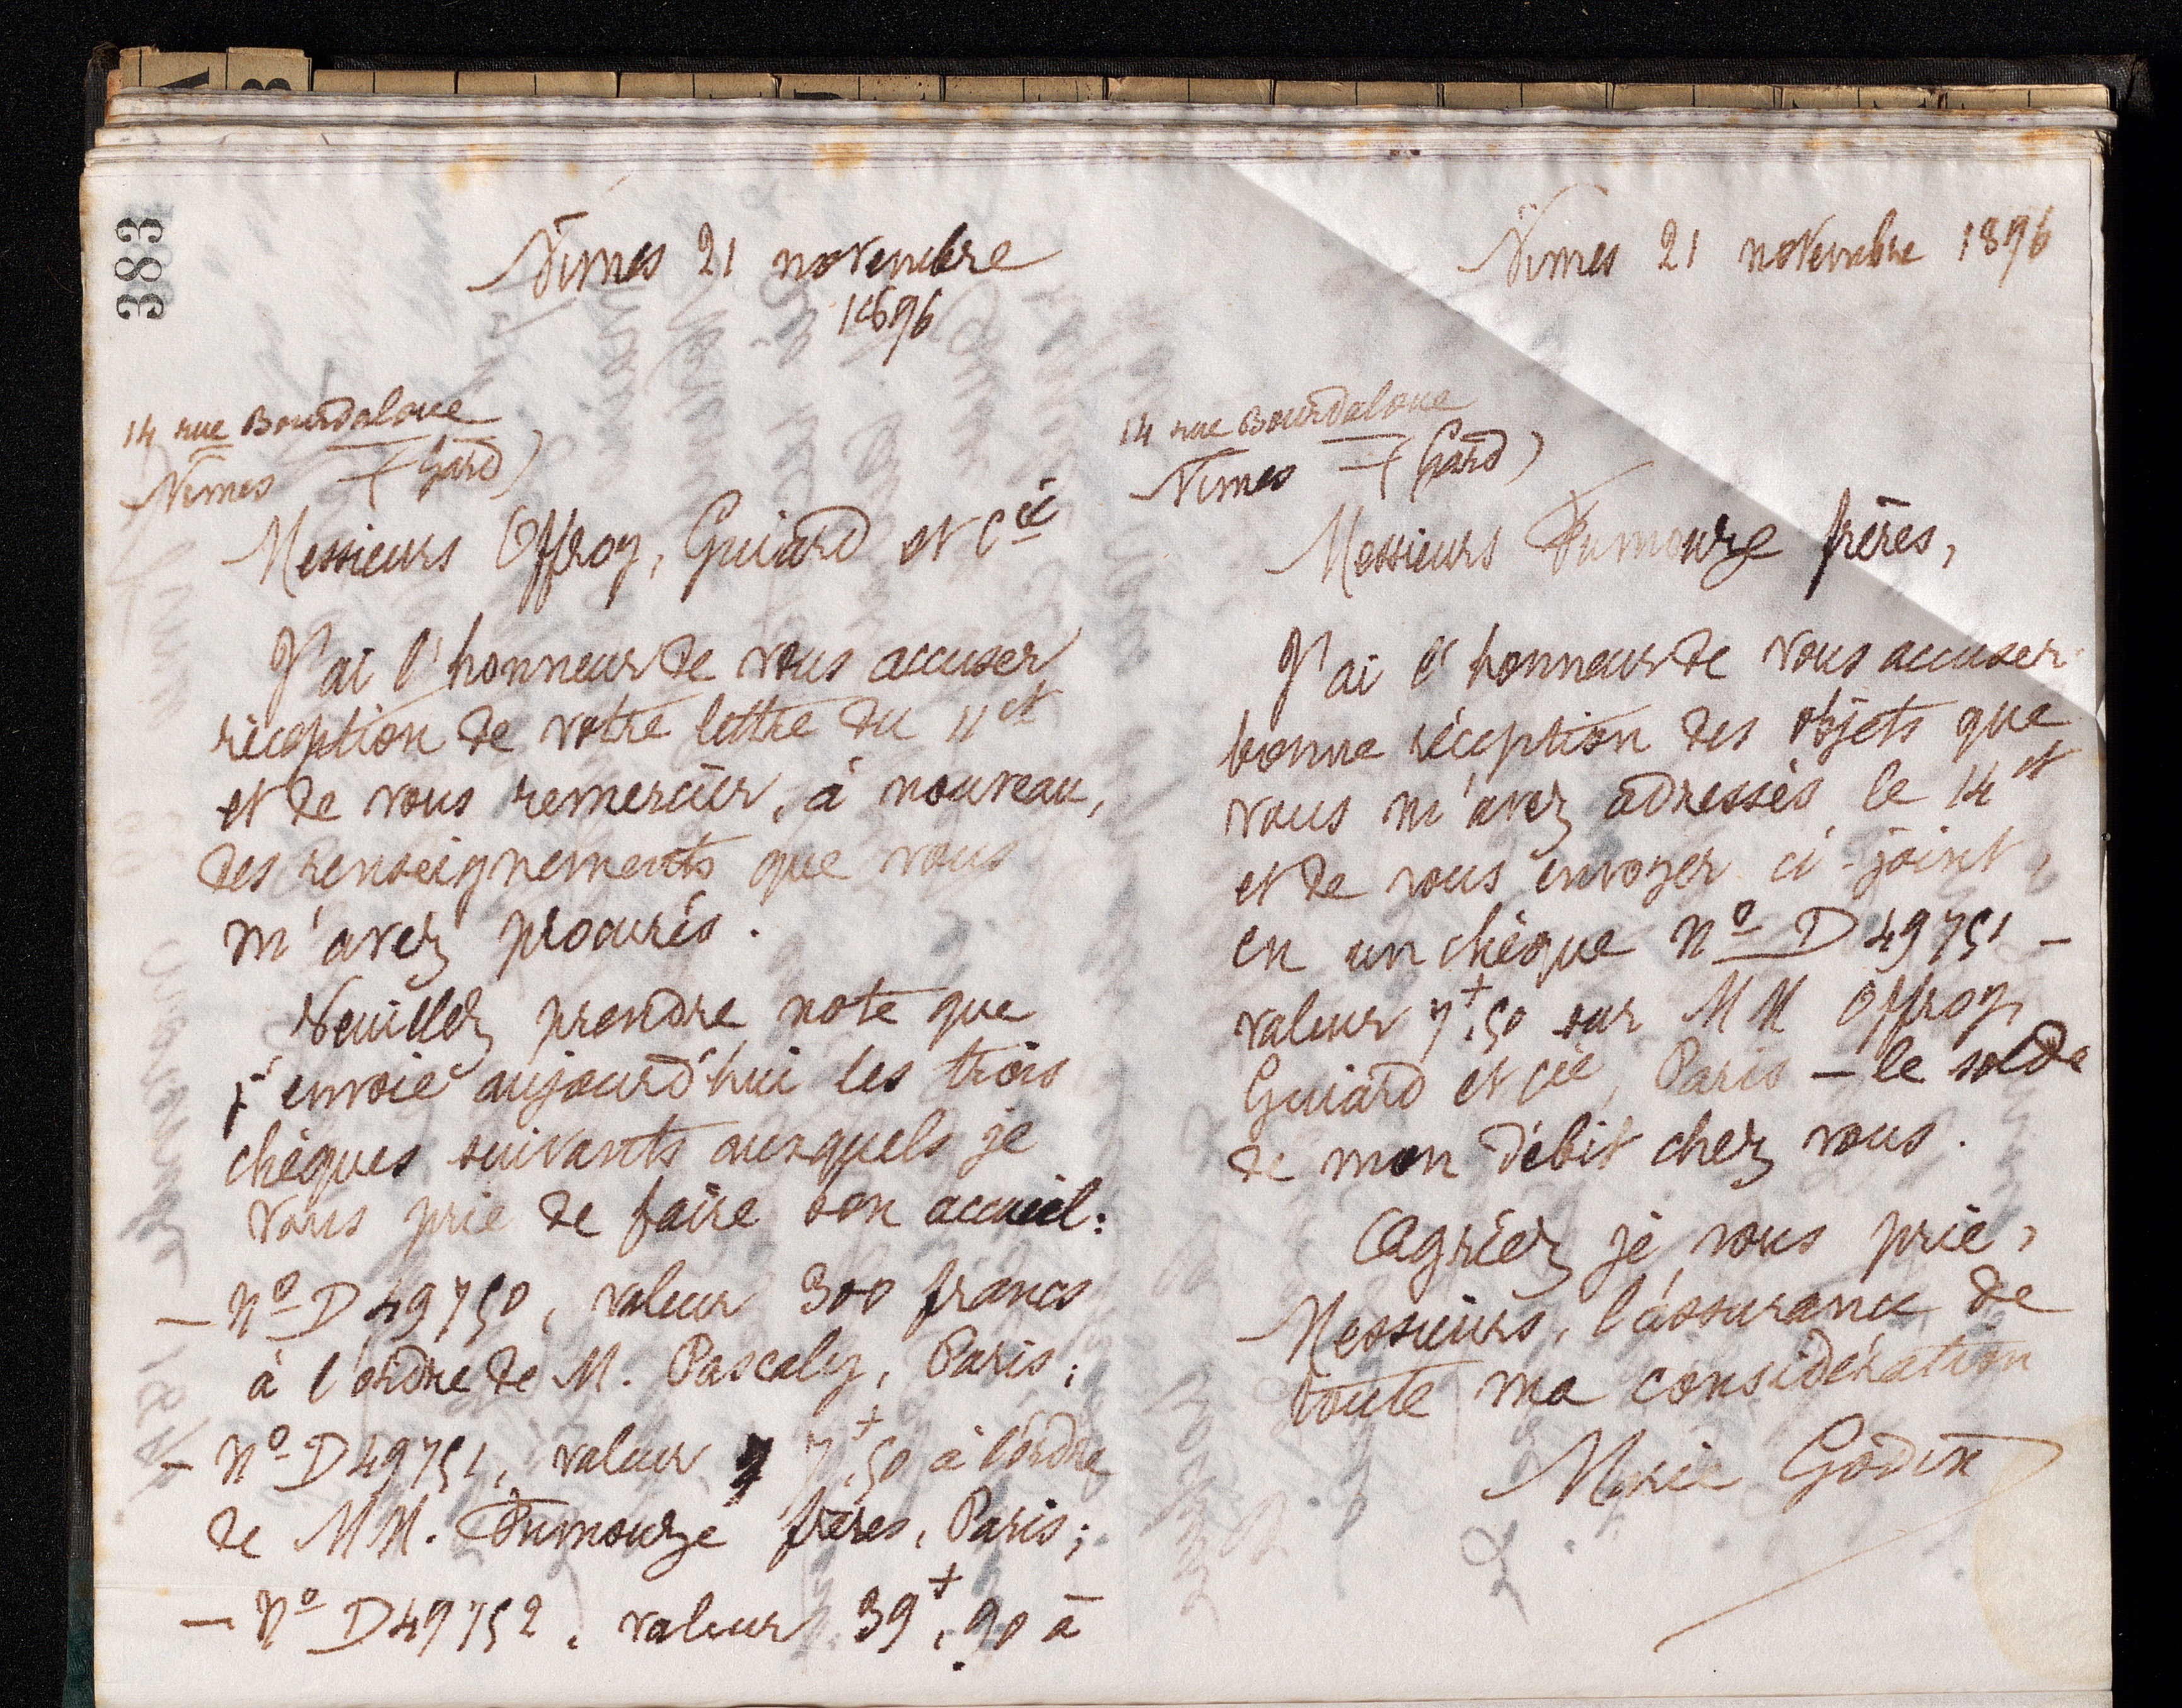 383
Nimes 21 novembre
1896
14 rue Bourdaloue
Nîmes — (Gard)
Messieurs Offroy, Guiard et Cie
J'ai l'honneur de vous accuser
réception de votre lettre du 11 ct
et de vous remercier, à nouveau,
des renseignements que vous
m'avez procurés.
Veuillez prendre note que
j'envoie aujourd'hui les trois
chèques suivants auxquels je
vous prie de faire bon accueil:
— No D 49750, valeur 300 francs
à l'ordre de M. Pascaly, Paris;
— No D 49751, valeur 7f,50 à l'ordre
de MM. Fumouze frères, Paris;
— No D 49752, valeur 39f,90 à
Nimes 21 novembre 1896
14 rue Bourdaloue
Nîmes — (Gard)
Messieurs Fumouze frères,
J'ai l'honneur de vous accuser
bonne réception des objets que
vous m'avez adressés le 14 ct
et de vous envoyer ci-joint,
en un chèque No D 49751 —
valeur 7f,50 sur MM Offroy
Guiard et Cie, Paris — le solde
de mon débit chez vous.
Agréez je vous prie,
Messieurs, l'assurance de
toute ma considération
Marie Godin